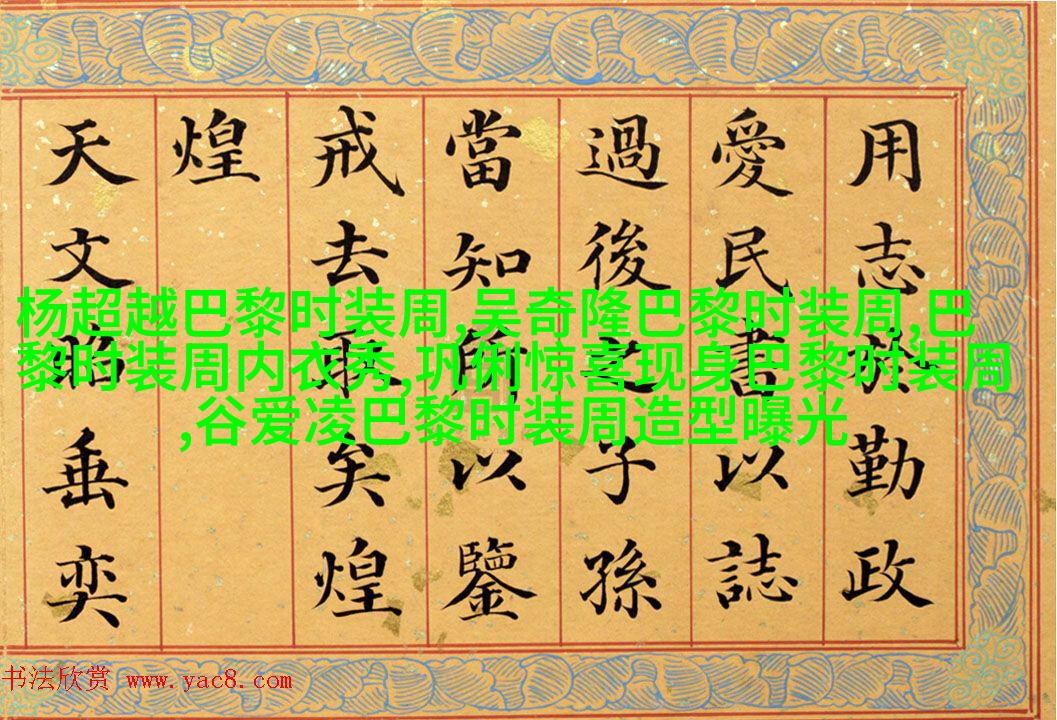 用志於勤政
愛民書以誌
過後之子孫
當知以鑒
戒去矣煌
煌
天文昭垂奕
杨超越巴黎时装周,吴奇隆巴黎时装周,巴
黎时装周内衣秀,巩俐惊喜现身巴黎时装周
,谷爱凌巴黎时装周造型曝光
书法欣赏 www.yac8.com